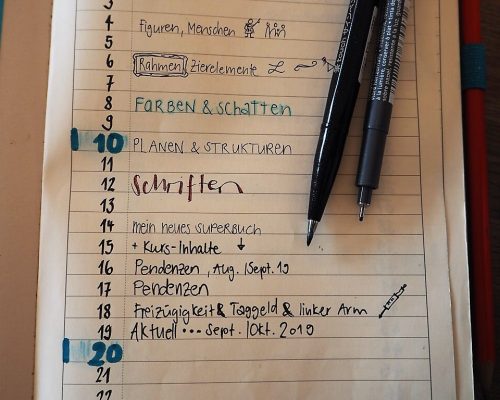 3
4 Figuren, Menschen
5
6 Rahmen Zierelemente
7
8 FARBEN & SCHATTEN
9
10 PLANEN & STRUKTUREN
11
12 Schriften
13
14 mein neues SUPERBUCH
15 + Kurs-Inhalte ↓
16 Pendenzen, Aug. | Sept. 19
17 Pendenzen
18 Freizügigkeit & Taggeld & linker Arm
19 Aktuell ... Sept. | Okt. 2019
20
21
22